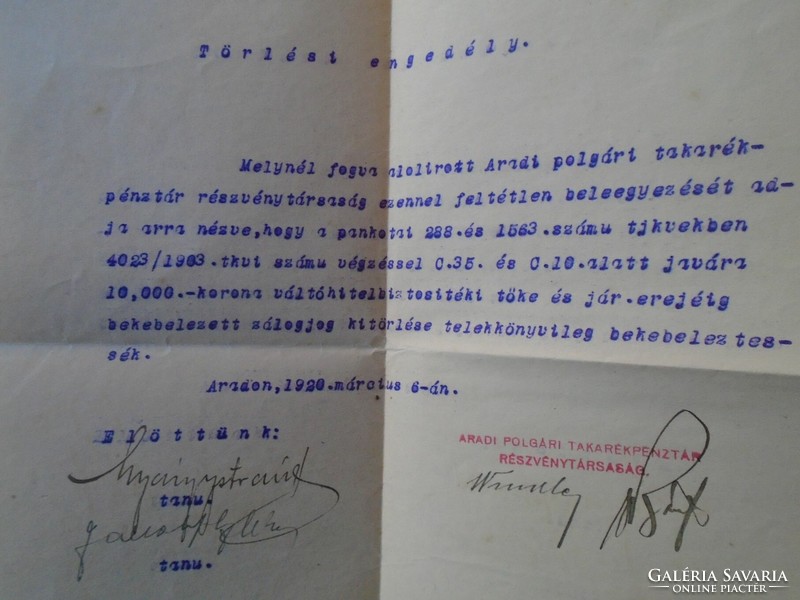 Törlési engedély.
Melynél fogva alolirott Aradi polgári takarék-
pénztár részvénytársaság ezennel feltétlen beleegyezését ad-
ja arra nézve,hogy a pankotai 288.és 1563.számu tjkvekben
4023/1903.tkvi számu végzéssel C.35. és C.10.alatt javára
10,000.-korona váltóhitelbiztositéki tőke és jár.erejéig
bekebelezett zálogjog kitörlése telekkönyvileg bekebeleztes-
sék.
Aradon,1920.március 6-án.
Előttünk:
tanu.
tanu.
ARADI POLGÁRI TAKARÉKPENZTÁR
RÉSZVÉNYTÁRSASÁG.
GALÉRIA SAVARIA
ONLINE PIACTÉR